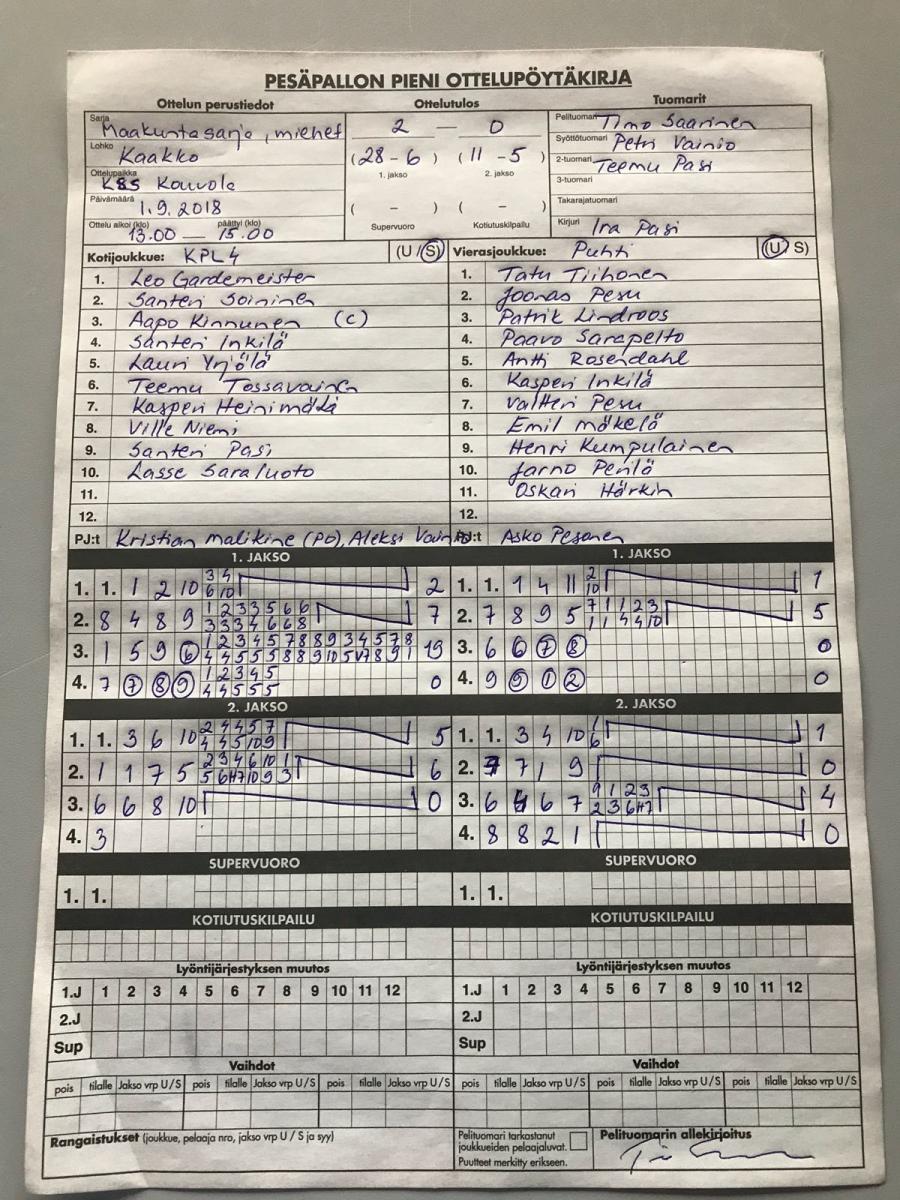 PESÄPALLON PIENI OTTELUPÖYTÄKIRJA
Ottelun perustiedot Ottelutulos Tuomarit
Sarja Maakuntasarja, miehet 2 — 0 Pelituomari Timo Saarinen
Lohko Kaakko (28-6) (11-5) Syöttötuomari Petri Vainio
Ottelupaikka KSS Kouvola 1. jakso 2. jakso 2-tuomari Teemu Pasi
Päivämäärä 1.9.2018 ( - ) ( - ) 3-tuomari
Takarajatuomari
Ottelu alkoi (klo) päättyi (klo) 13.00 — 15.00 Supervuoro Kotiutuskilpailu Kirjuri Ira Pasi
Kotijoukkue: KPL 4 (U / S) Vierasjoukkue: Puhti (U / S)
1. Leo Gardemeister 1. Tatu Tiihonen
2. Santeri Soininen 2. Joonas Pesu
3. Aapo Kinnunen (C) 3. Patrik Lindroos
4. Santeri Inkilä 4. Paavo Sarapelto
5. Lauri Yrjölä 5. Antti Rosendahl
6. Teemu Tossavainen 6. Kasperi Inkilä
7. Kasperi Heinimäki 7. Valtteri Pesu
8. Ville Niemi 8. Emil Mäkelä
9. Santeri Pasi 9. Henri Kumpulainen
10. Lasse Saraluoto 10. Jarno Perilä
11. 11. Oskari Härkin
12. 12.
PJ:t Kristian Malikine (PO), Aleksi Vainio PJ:t Asko Pesonen
1. JAKSO 1. JAKSO
1. 1. 1 2 10 3 4 2 1. 1. 1 4 11 2 1
6 10 10
2. 8 4 8 9 1 2 3 3 5 6 6 7 2. 7 8 9 5 7 1 1 2 3 5
3 3 3 4 6 6 8 1 1 4 4 10
3. 1 5 9 6 1 2 3 4 5 7 8 8 9 3 4 5 7 8 19 3. 6 6 7 8 0
4 4 5 5 5 8 8 9 10 5 V7 8 9 1
4. 7 7 8 9 1 2 3 4 5 0 4. 9 9 1 2 0
4 4 5 5 5
2. JAKSO 2. JAKSO
1. 1. 3 6 10 2 4 4 5 7 5 1. 1. 3 4 10 1 1
4 4 5 10 9 6
2. 1 1 7 5 2 3 4 6 10 1 6 2. 7 7 1 9 0
5 6 H7 10 9 3
3. 6 6 8 10 0 3. 6 4 6 7 9 1 2 3 4
2 3 6 H7
4. 3 4. 8 8 2 1 0
SUPERVUORO SUPERVUORO
1. 1. 1. 1.
KOTIUTUSKILPAILU KOTIUTUSKILPAILU
Lyöntijärjestyksen muutos Lyöntijärjestyksen muutos
1.J 1 2 3 4 5 6 7 8 9 10 11 12 1.J 1 2 3 4 5 6 7 8 9 10 11 12
2.J 2.J
Sup Sup
Vaihdot Vaihdot
pois tilalle Jakso vrp U/S pois tilalle Jakso vrp U/S pois tilalle Jakso vrp U/S pois tilalle Jakso vrp U/S pois tilalle Jakso vrp U/S pois tilalle Jakso vrp U/S
Rangaistukset (joukkue, pelaaja nro, jakso vrp U / S ja syy) Pelituomari tarkastanut Pelituomarin allekirjoitus
joukkueiden pelaajaluvat.
Puutteet merkitty erikseen.